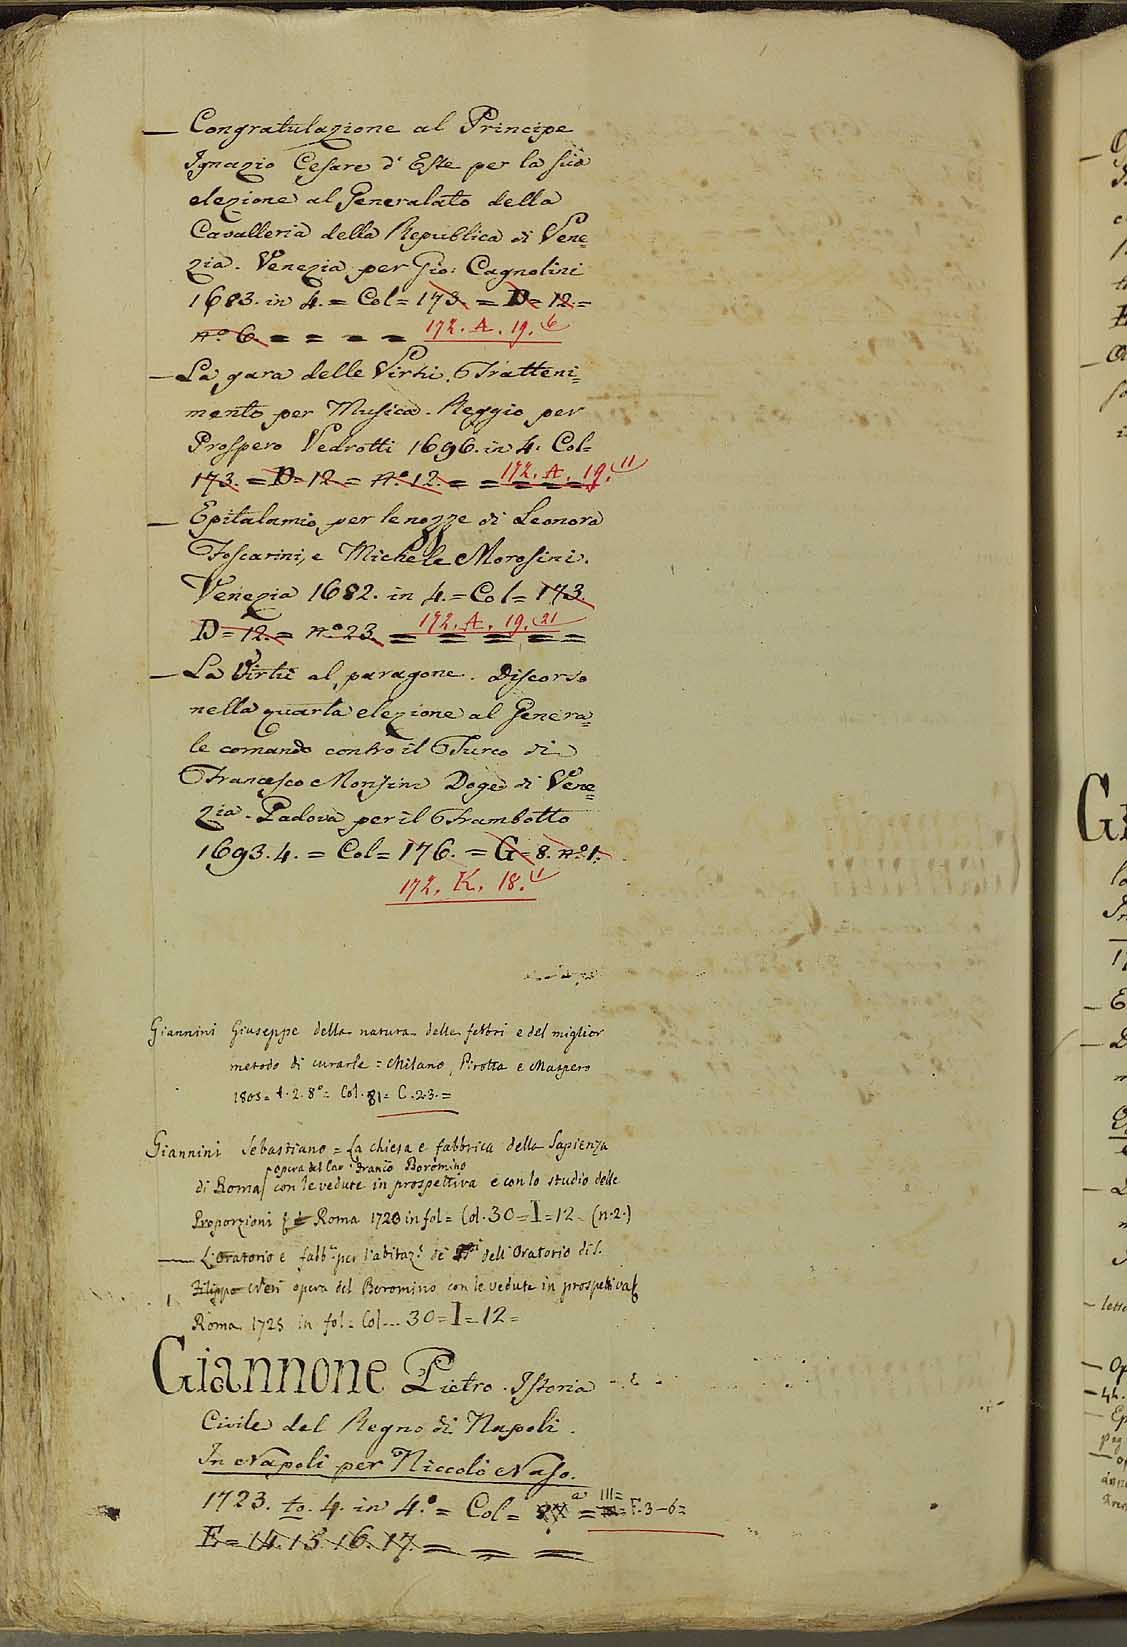 — Congratulazione al Principe
Ignazio Cesare d'Este per la sua
elezione al Generalato della
Cavalleria della Republica di Vene=
zia. Venezia per Gio: Cagnolini
1683. in 4. = Col = 173. = D = 12. =
n.º 6. = = = = 172. A. 19. 6
— La gara delle Virtù. Tratteni=
mento per Musica. Reggio per
Prospero Vedrotti 1696. in 4. Col=
173. = D = 12 = n.º 12. = = 172. A. 19. 11
— Epitalamio per le nozze di Leonora
Foscarini, e Michele Morosini.
Venezia 1682. in 4. = Col = 173.
D = 12. = n.º 23 = 172. A. 19. 21
— La Virtù al paragone. Discorso
nella quarta elezione al Genera=
le comando contro il Turco di
Francesco Morisini Doge di Vene=
zia. Padova per il Frambotto
1693. 4. = Col = 176. = G = 8. nº 1.
172. K. 18. 1
Giannini Giuseppe della natura delle febbri e del miglior
metodo di curarle = Milano, Pirotta e Maspero
1805 = t. 2. 8º = Col. 81 = C. 23. =
Giannini Sebastiano = La chiesa e fabbrica della Sapienza
opera del Cav. Franco Boromino
di Roma con le vedute in prospettiva e con lo studio delle
Proporzioni Roma 1720 in fol = Col. 30 = I = 12 (n. 2.)
— L'Oratorio e fabb. per l'abitaz. de dell'Oratorio di S.
Filippo Neri opera del Boromino con le vedute in prospettiva
Roma 1725 in fol = Col — 30 = I = 12 =
Giannone Pietro. Istoria
Civile del Regno di Napoli.
In Napoli per Niccolò Naso.
1723. to. 4. in 4.º = Col = a III = F. 3-6 =
E = 14. 15. 16. 17. = = =